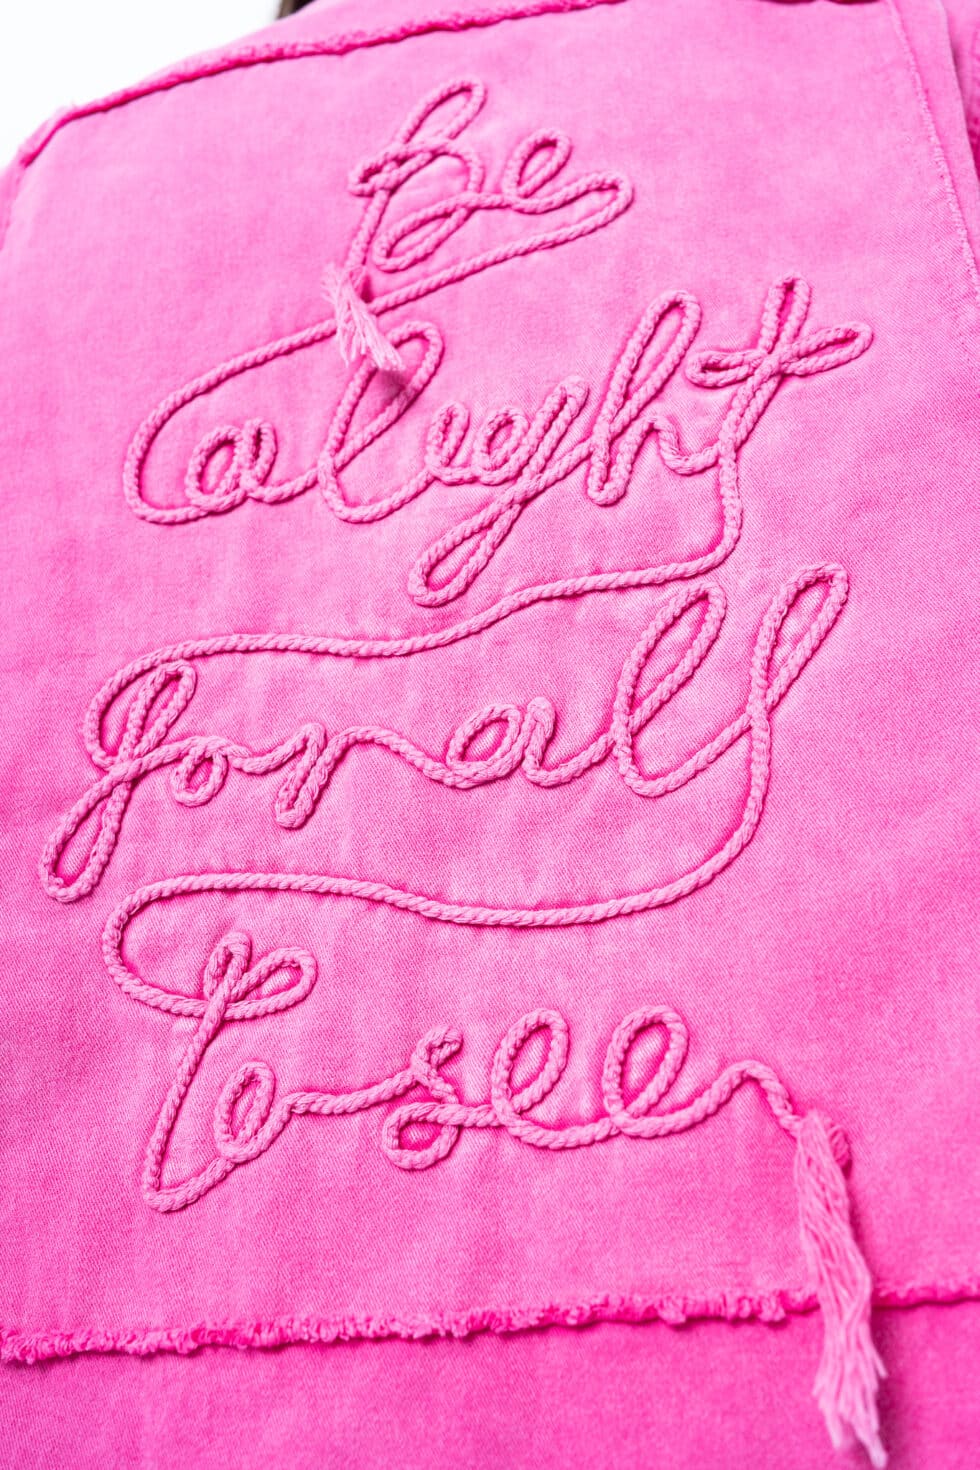 Be
a light
for all
To see